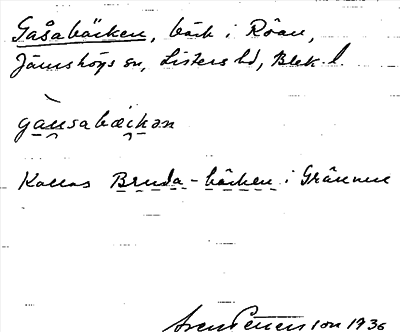 Gåsabäcken, bäck i Röan,
Jämshögs sn, Listers hd, Blek. l.
gausabækan
Kallas Bruda-bäcken i Grännum
Sven Petterson 1936